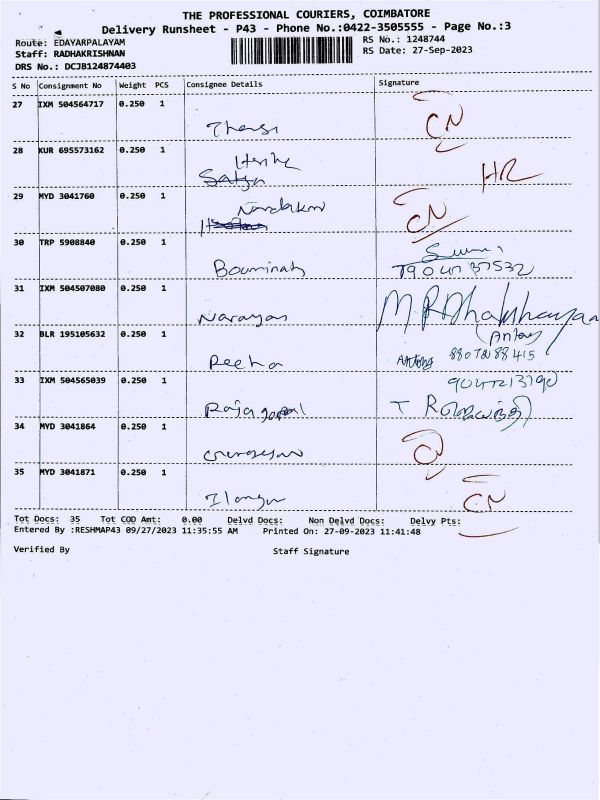 THE PROFESSIONAL COURIERS, COIMBATORE
Delivery Runsheet - P43 - Phone No.:0422-3505555 - Page No.:3
Route: EDAYARPALAYAM
Staff: RADHAKRISHNAN
DRS No.: DCJB124874403
RS No.: 1248744
RS Date: 27-Sep-2023
S No Consignment No Weight PCS Consignee Details Signature
27 IXM 504564717 0.250 1 CN
28 KUR 695573162 0.250 1 HR
29 MYD 3041760 0.250 1 CN
30 TRP 5908840 0.250 1 Bouminath
31 IXM 504507080 0.250 1 Narayan
32 BLR 195105632 0.250 1 Reetha Antony
33 IXM 504565039 0.250 1 Rajagopal
34 MYD 3041864 0.250 1 CN
35 MYD 3041871 0.250 1 Ilango CN
Tot Docs: 35 Tot COD Amt: 0.00 Delvd Docs: Non Delvd Docs: Delvy Pts:
Entered By :RESHMAP43 09/27/2023 11:35:55 AM Printed On: 27-09-2023 11:41:48
Verified By Staff Signature